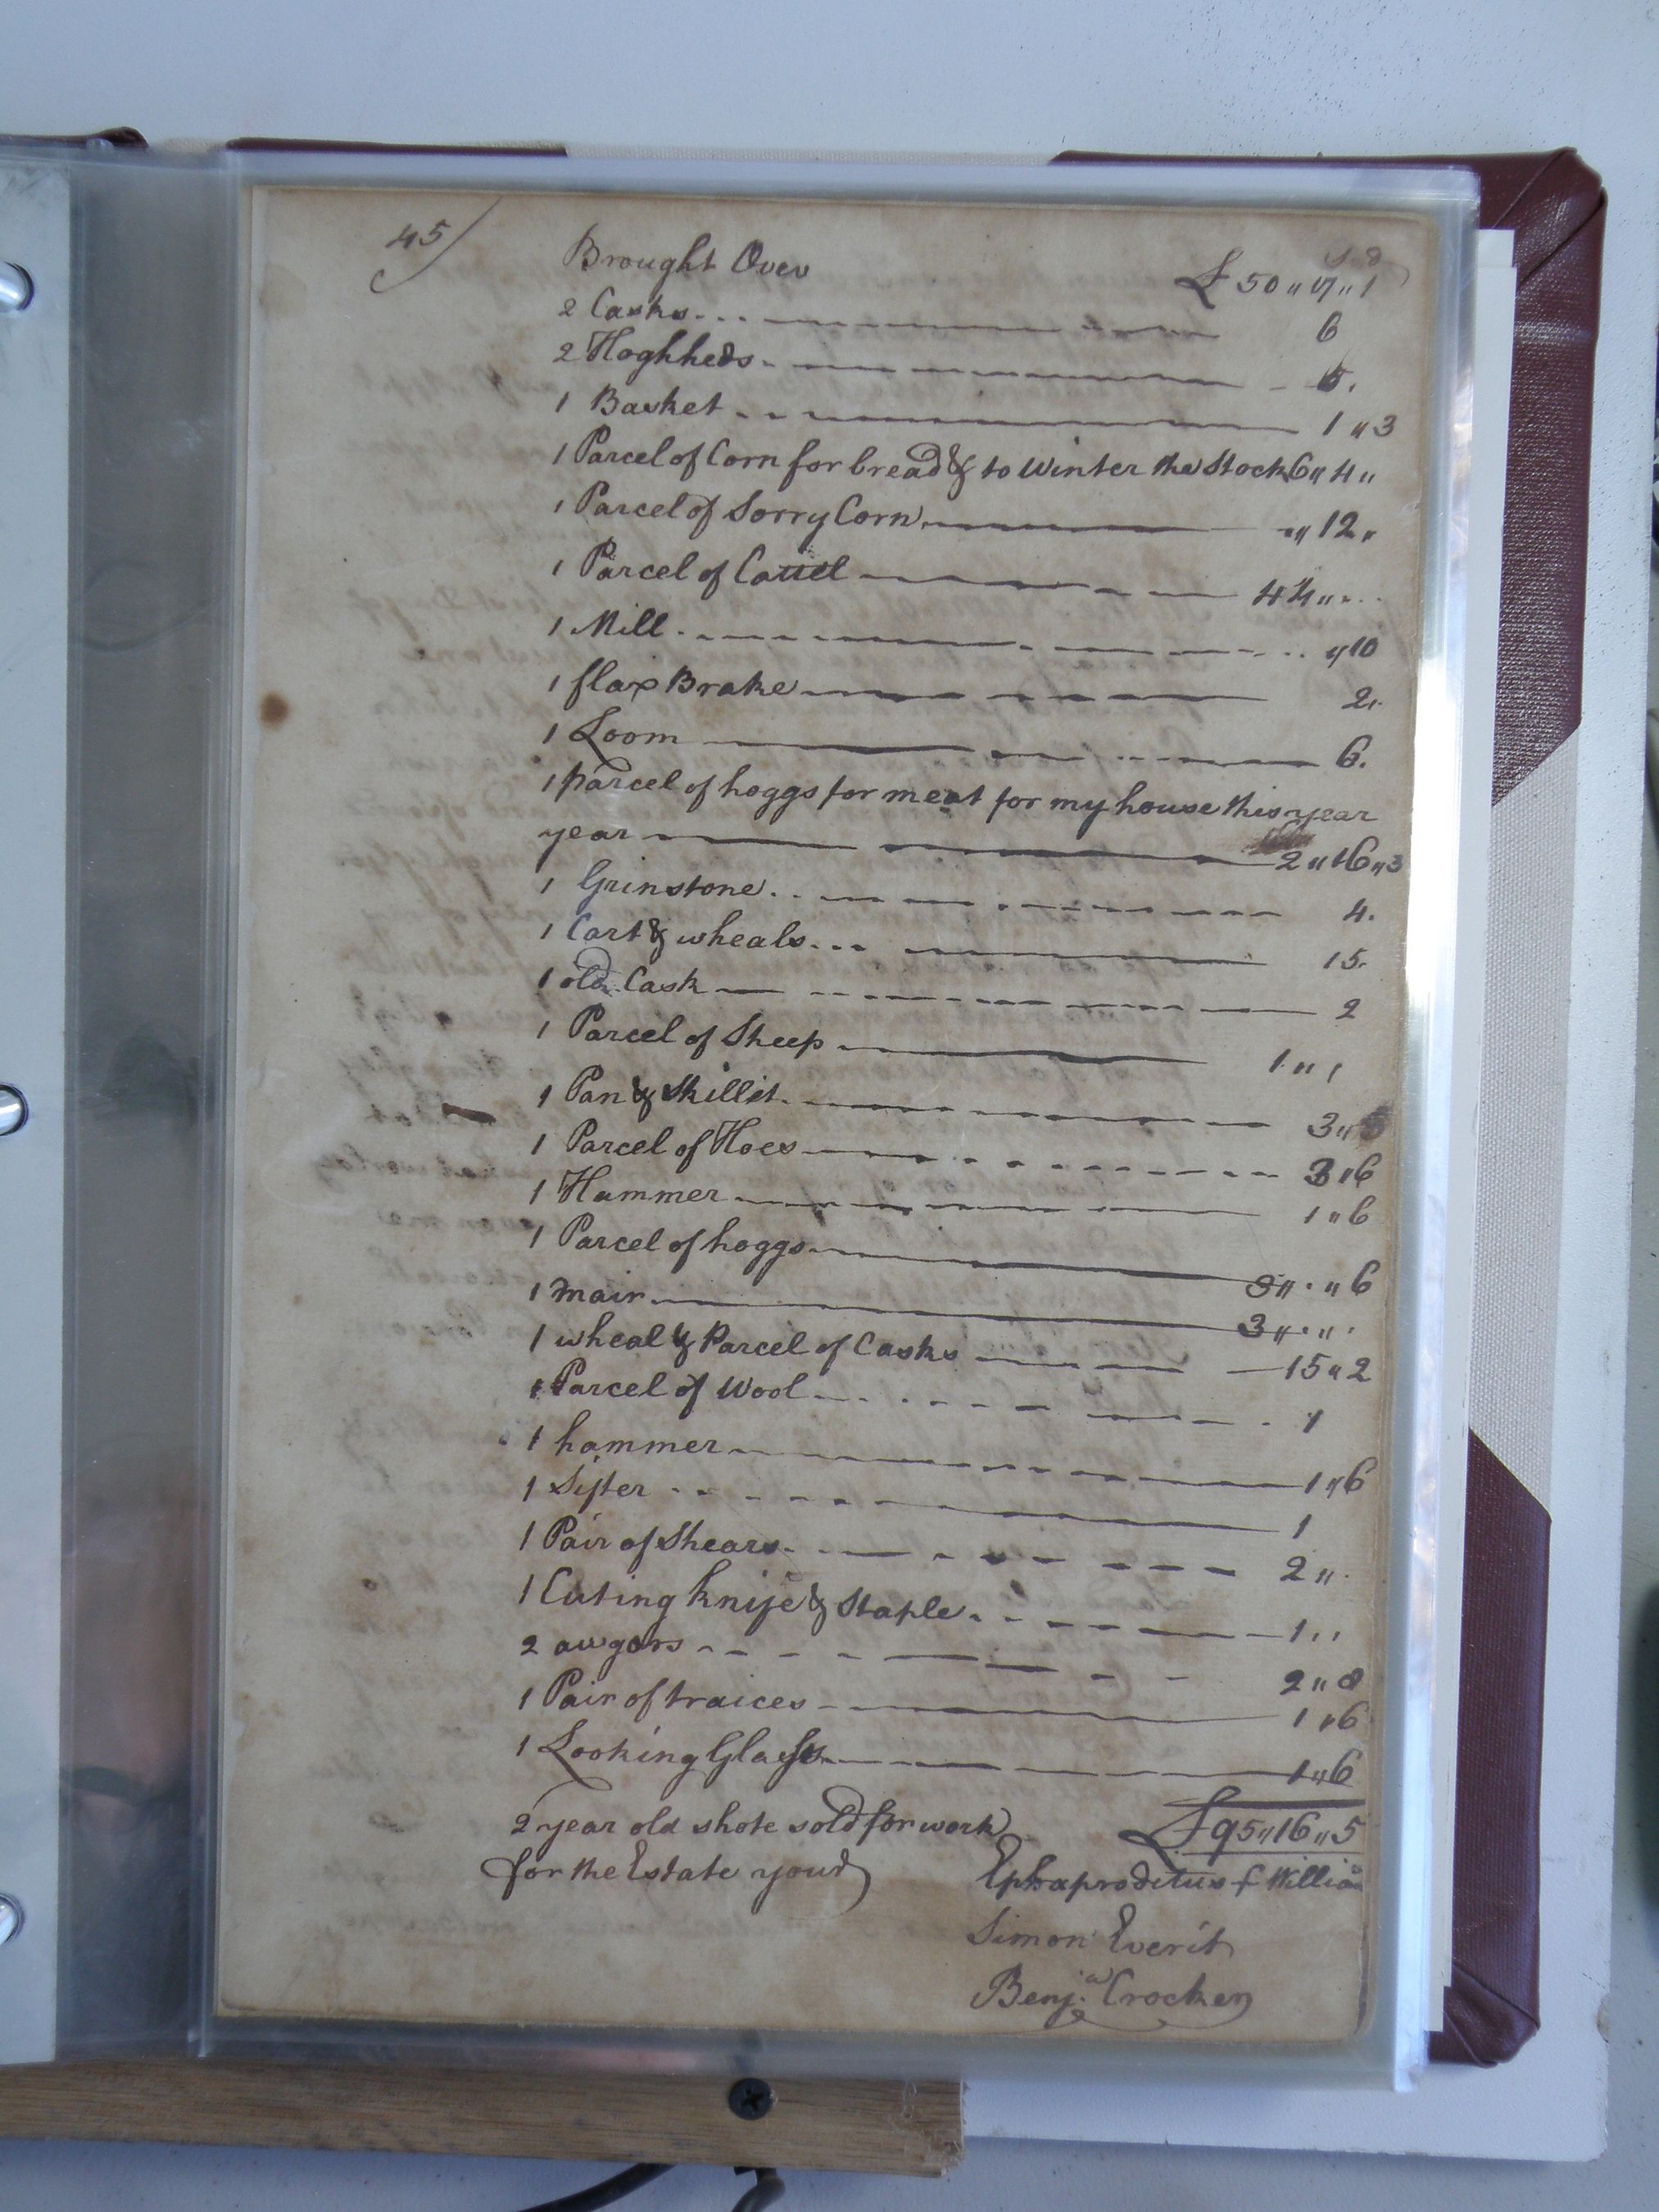 45
s d
Brought Over £ 50 〃 17 〃 1
2 Casks 6
2 Hoghheds 5.
1 Basket 1 〃 3
1 Parcel of Corn for bread & to Winter the Stock 6 〃 4 〃
1 Parcel of Sorry Corn 〃 12 〃
1 Parcel of Cattel 44 〃
1 Mill 〃 10
1 flax Brake 2 〃
1 Loom 6.
1 parcel of hoggs for meat for my house this year
year 2 〃 16 〃 3
1 Grinstone 4.
1 Cart & wheals 15.
1 old Cask 2
1 Parcel of Sheep 1 〃 1
1 Pan & Skillit 3 〃
1 Parcel of Hoes 3 〃 6
1 Hammer 1 〃 6
1 Parcel of hoggs 〃 〃 6
1 mair 3 〃 〃
1 wheal & Parcel of Casks 15 〃 2
1 Parcel of Wool 1
1 hammer 1 〃 6
1 Sifter 1
1 Pair of Shears 2 〃
1 Cuting knife & Staple 1 〃
2 awgors 2 〃 8
1 Pair of traices 1 〃 6
1 Looking Glass 1 〃 6
2 year old shote sold for work £ 95 〃 16 〃 5
for the Estate youd Ephaproditus f Willia
Simon Everit
Benj.a Crocker